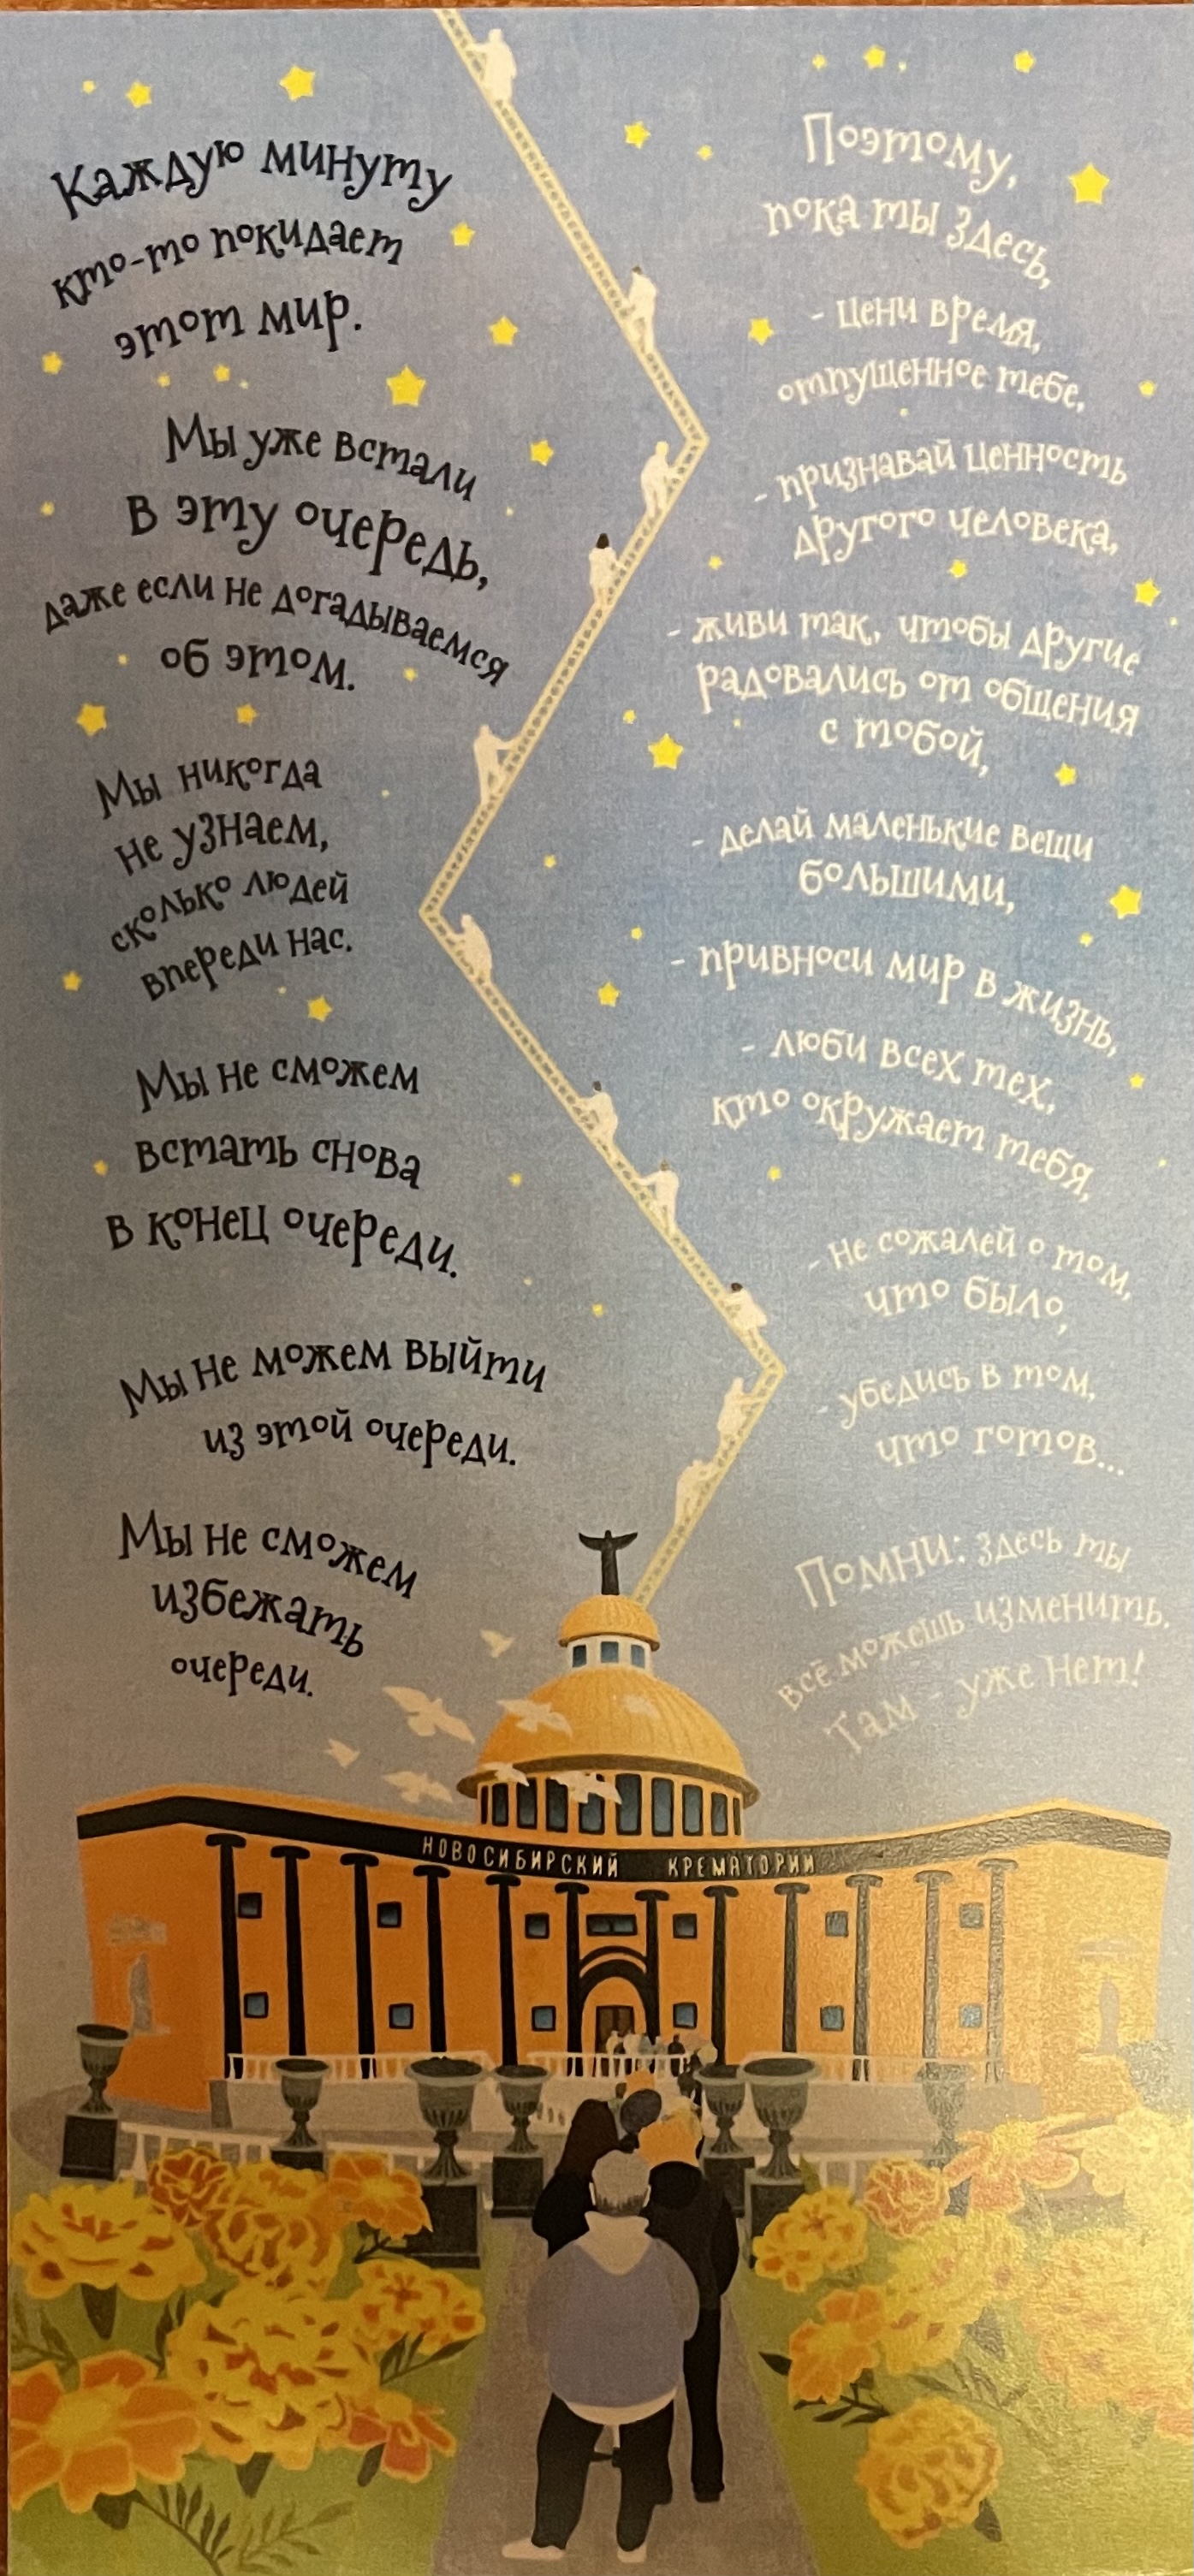 Каждую минуту
кто-то покидает
этот мир.
Мы уже встали
в эту очередь,
даже если не догадываемся
об этом.
Мы никогда
не узнаем,
сколько людей
впереди нас.
Мы не сможем
встать снова
в конец очереди.
Мы не можем выйти
из этой очереди.
Мы не сможем
избежать
очереди.
Поэтому,
пока ты здесь,
- цени время,
отпущенное тебе,
- признавай ценность
другого человека,
- живи так, чтобы другие
радовались от общения
с тобой,
- делай маленькие вещи
большими,
- привноси мир в жизнь,
- люби всех тех,
кто окружает тебя,
- не сожалей о том,
что было,
- убедись в том,
что готов...
Помни: здесь ты
всё можешь изменить.
Там - уже нет!
НОВОСИБИРСКИЙ КРЕМАТОРИЙ